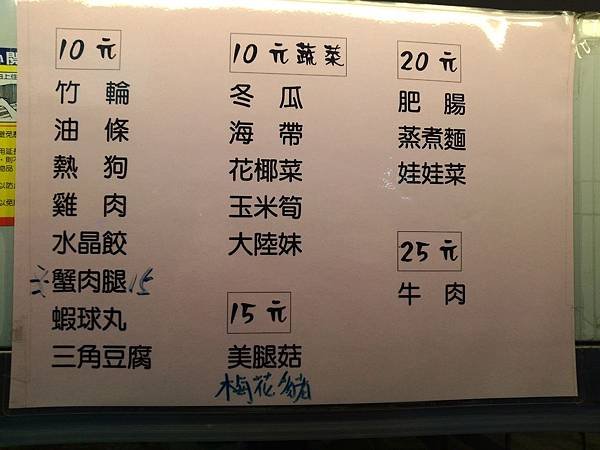 10 元
竹輪
油條
熱狗
雞肉
水晶餃
蟹肉腿 15
蝦球丸
三角豆腐
10 元蔬菜
冬瓜
海帶
花椰菜
玉米筍
大陸妹
15 元
美腿菇
梅花豬
20 元
肥腸
蒸煮麵
娃娃菜
25 元
牛肉